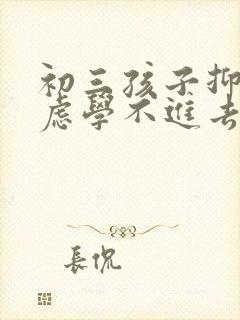 初三孩子抑
虑學不進去
長侃